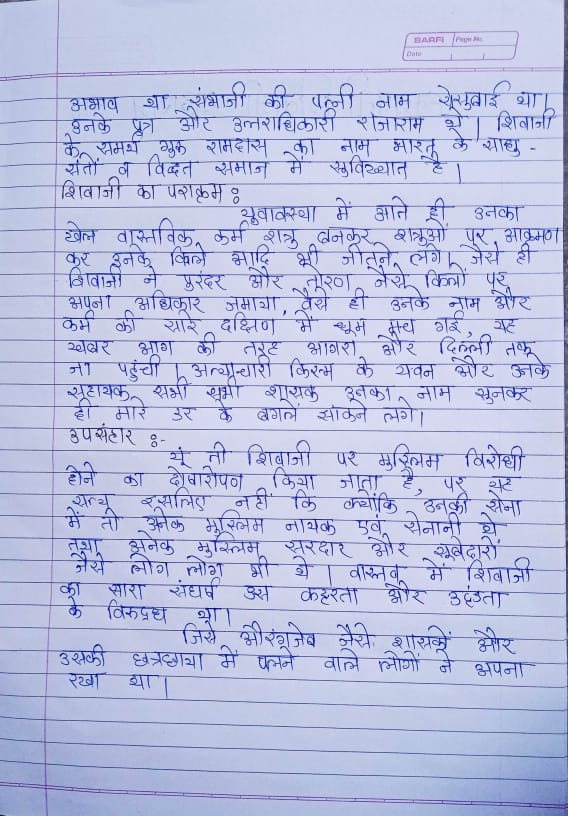 BARFI Page No.
Date
अभाव था संभाजी की पत्नी नाम येसुबाई था।
उनके पुत्र और उत्तराधिकारी राजाराम थे। शिवाजी
के समर्थ गुरू रामदास का नाम भारत के साधु -
संतों व विद्वत समाज में सुविख्यात है।
शिवाजी का पराक्रम :
युवावस्था में आते ही उनका
खेल वास्तविक कर्म शत्रु बनकर शत्रुओं पर आक्रमण
कर उनके किले आदि भी जीतने लगे। जैसे ही
शिवाजी ने पुरंदर और तोरण जैसे किलों पर
अपना अधिकार जमाया, वैसे ही उनके नाम और
कर्म की सारे दक्षिण में धूम मच गई, यह
खबर आग की तरह आगरा और दिल्ली तक
जा पहुंची। अत्याचारी किस्म के यवन और उनके
सहायक सभी शासक उनका नाम सुनकर
ही मारे डर के बगलें झांकने लगे।
उपसंहार :-
यूं तो शिवाजी पर मुस्लिम विरोधी
होने का दोषारोपण किया जाता है, पर यह
सत्य इसलिए नहीं कि क्योंकि उनकी सेना
में तो अनेक मुस्लिम नायक एवं सेनानी थे
तथा अनेक मुस्लिम सरदार और सूबेदारों
जैसे लोग लोग भी थे। वास्तव में शिवाजी
का सारा संघर्ष उस कट्टरता और उद्दंडता
के विरूद्ध था।
जिसे औरंगजेब जैसे शासकों और
उसकी छत्रछाया में पलने वाले लोगों ने अपना
रखा था।